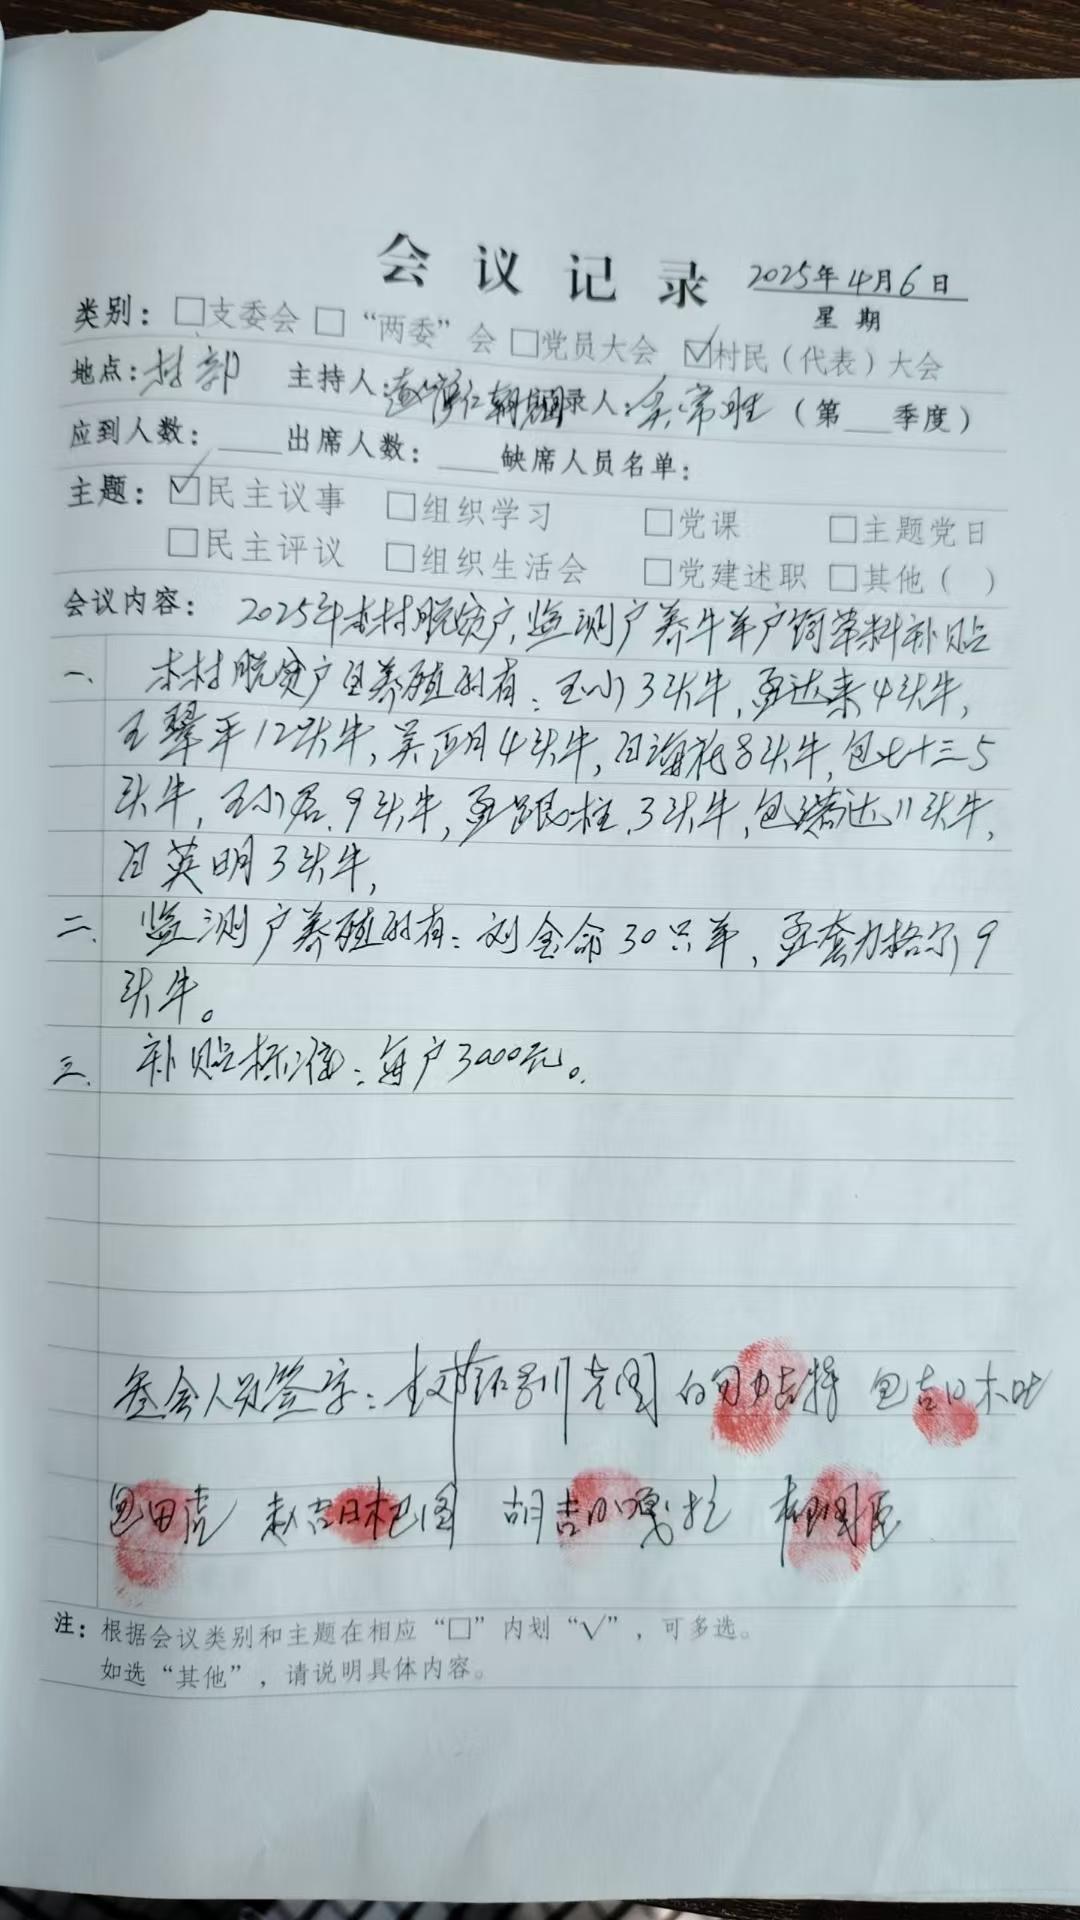 会议记录 2025年4月6日
星期
类别：□支委会 □“两委”会 □党员大会 ☑村民（代表）大会
地点：村部 主持人： 记录人：吴常胜（第___季度）
应到人数：____出席人数：____缺席人员名单：
主题：☑民主议事 □组织学习 □党课 □主题党日
□民主评议 □组织生活会 □党建述职 □其他（ ）
会议内容： 2025年本村脱贫户,监测户养牛羊户饲草料补贴
一、 本村脱贫户里养殖的有：王小3头牛,孟达来4头牛,
王翠平12头牛,吴正月4头牛,白海祝8头牛,包七十三5
头牛,王小君.9头牛,孟跟柱.3头牛,包满达11头牛,
白英明3头牛,
二、 监测户养殖的有：刘金命30只羊、孟套力格尔9
头牛。
三、 补贴标准：每户3000元。
参会人员签字： 克图 白 吉特 包吉日木吐
包田虎 赵吉日木巴图 胡吉日嘎拉
注：根据会议类别和主题在相应“□”内划“√”，可多选。
如选“其他”，请说明具体内容。